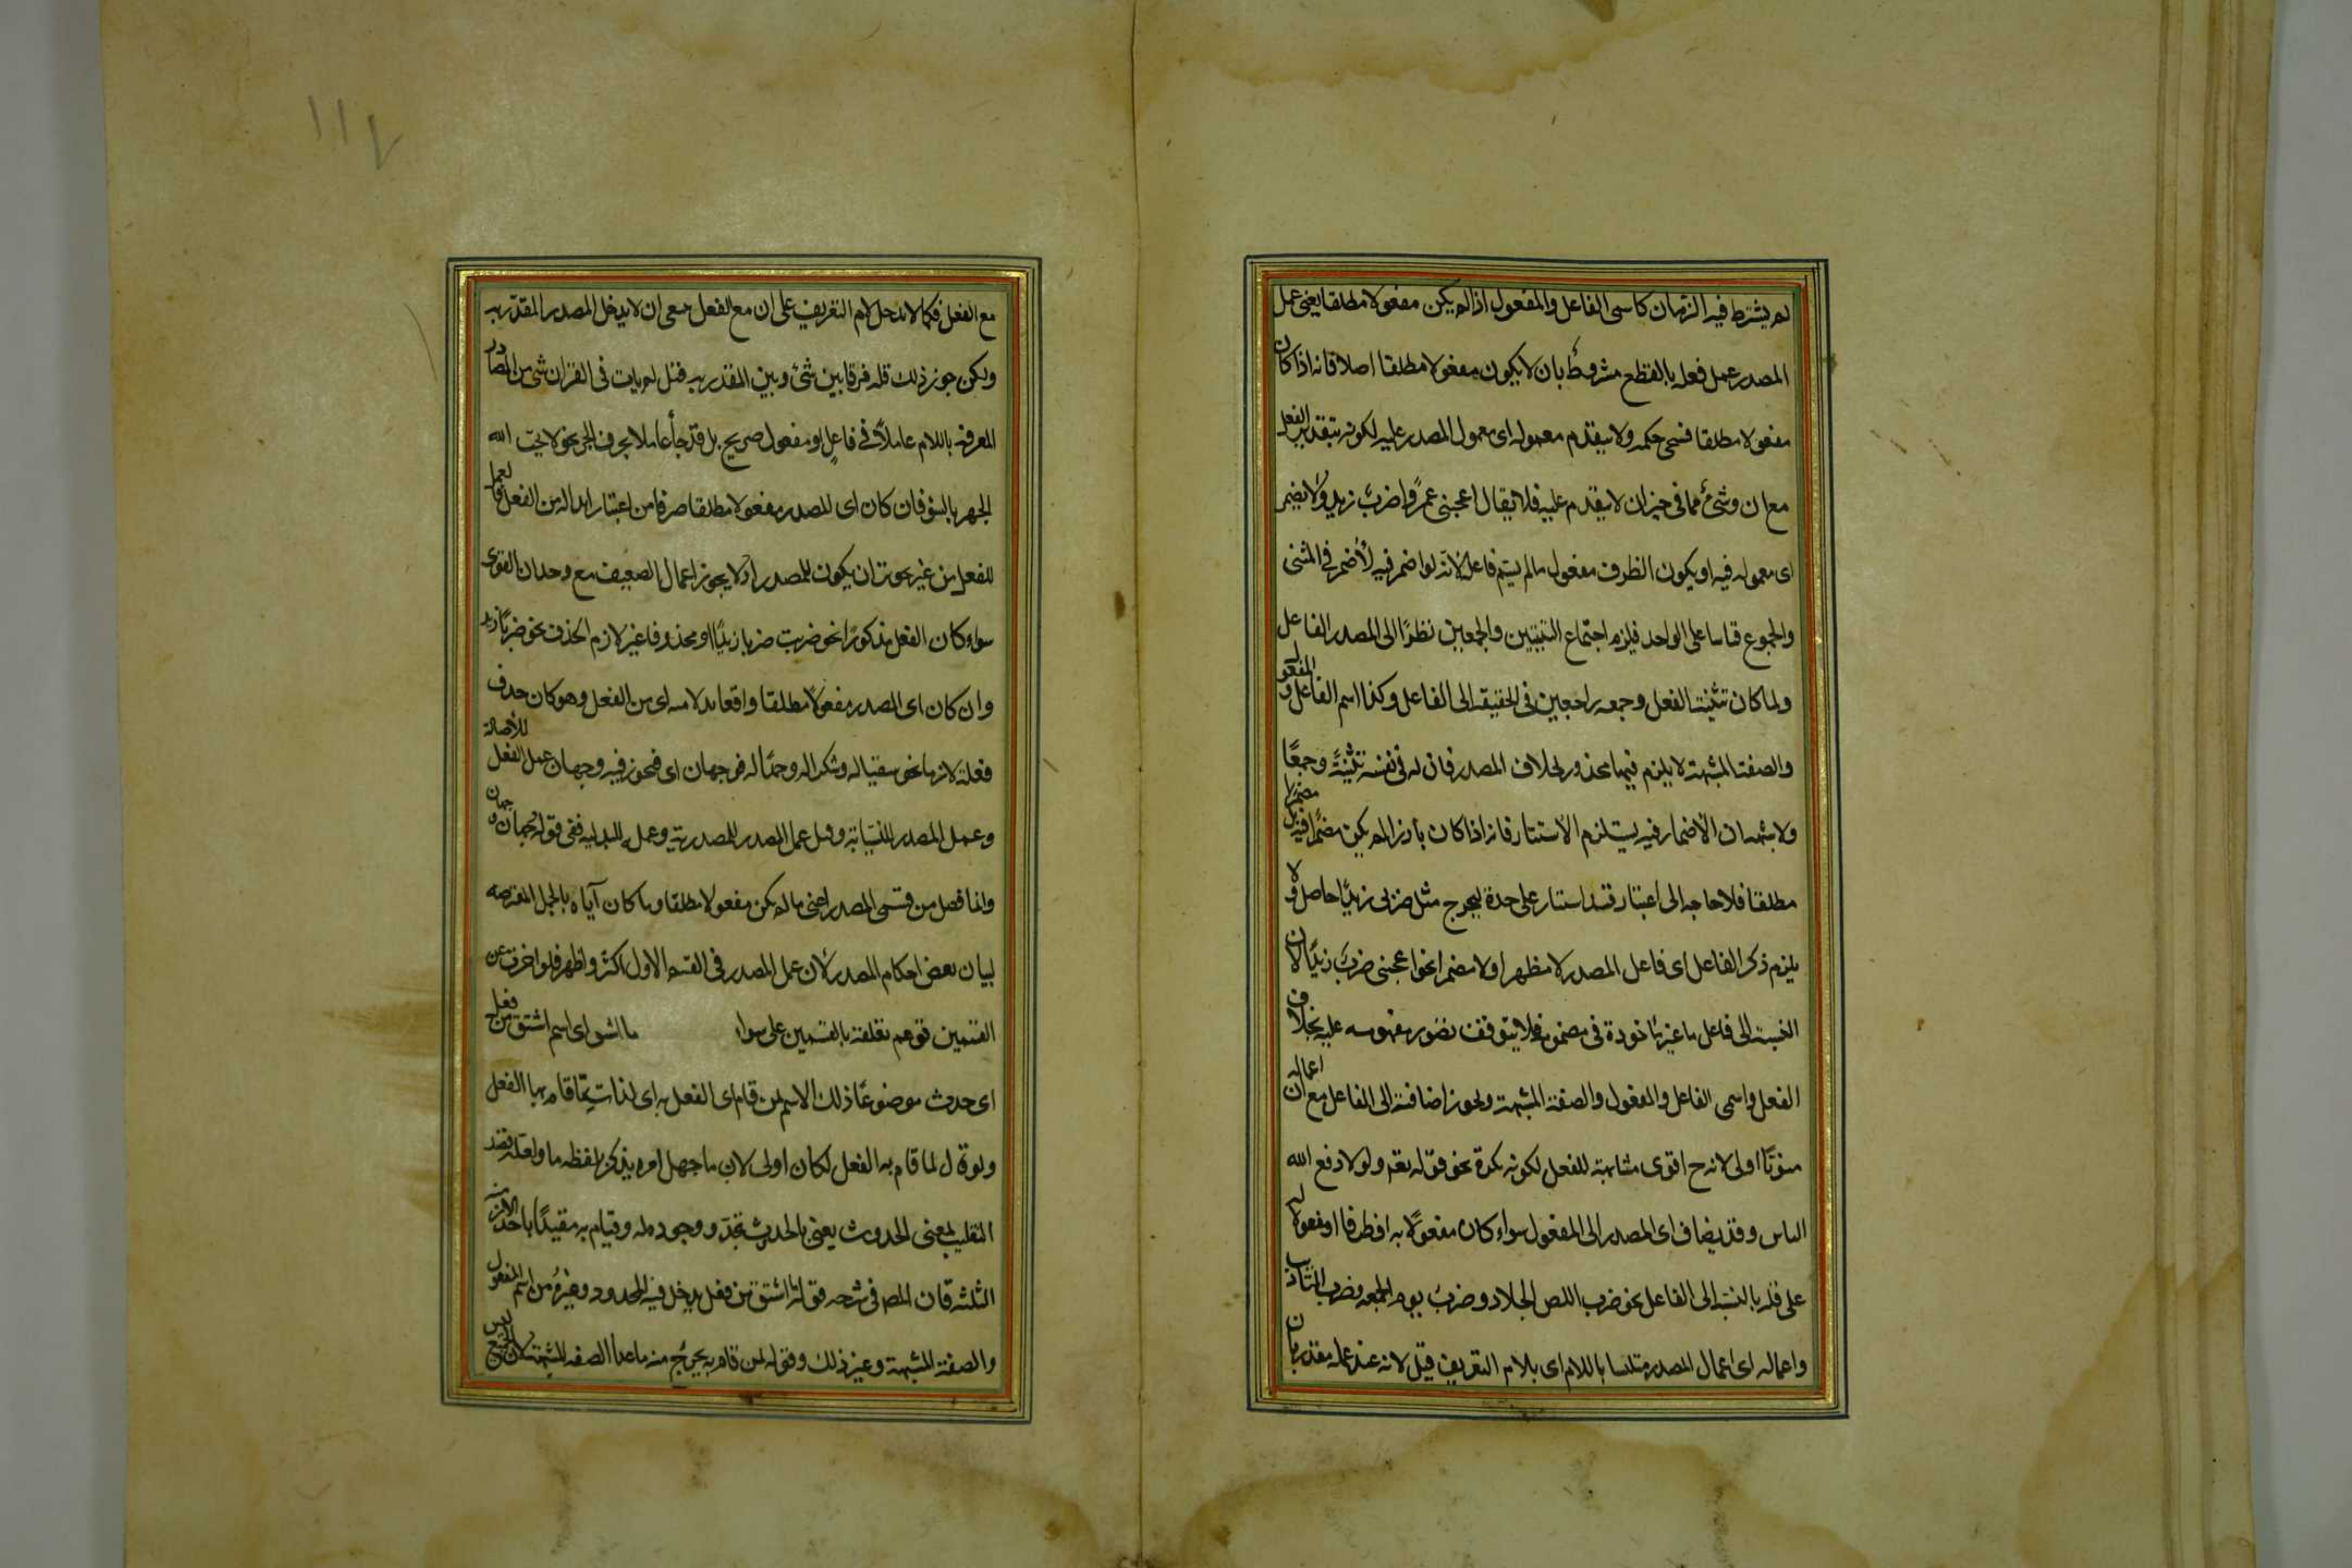 لم يشترط فيه الزمان كاسمى الفاعل والمفعول اذا لم يكن مفعولا مطلقا يعنى عمل
المصدر عمل فعله بالقطع مشروط بان لا يكون مفعولا مطلقا اصلا فانه اذا كان
مفعولا مطلقا فسيجئ حكمه ولا يتقدم معموله اى معمول المصدر عليه لكونه بتقدير الفعل
مع ان وشئ مما فى حيز ان لا يتقدم عليه فلا يقال اعجبنى عمرًوا ضربُ زيد ولا يضمر
اى معموله فيه او يكون الظرف مفعول مالم يسم فاعله لانه لو اضمر فيه لأضمر فى المثنى
والمجموع قياسا على الواحد فيلزم اجتماع التثنيتين والجمعين نظرًا الى المصدر والفاعل
ولما كان تثنية الفعل وجمعه راجعين فى الحقيقة الى الفاعل وكذا اسم الفاعل والمفعول
والصفة المشبهة لا يلزم فيها محذور بخلاف المصدر فان له فى نفسه تثنيةً وجمعًا
ولا شبهة ان الأضمار فيه يستلزم الأستتار فانه اذا كان بارزا لم يكن مضمرًا فيه بل مضمرًا
مطلقا فلا حاجه الى اعتبار قيد استتار على حدة ليخرج مثل ضربى زيدًا حاصل ولا
يلزم ذكر الفاعل اى فاعل المصدر لا مظهرا ولا مضمرا نحو اعجبنى ضربٌ زيدًا لان
النسبة الى فاعل ما غير مأخوذة فى مفهومه فلا يتوقف تصور مفهومه عليه بخلاف
الفعل واسمى الفاعل والمفعول والصفة المشبهة ويجوز اضافته الى الفاعل مع ان اعماله
منونًا اولى لانه ح اقوى مشابهة للفعل لكونه نكرة نحو قوله تعه ولولا دفع الله
الناس وقد يضاف اى المصدر الى المفعول سواء كان مفعولًا به او ظرفا او مفعولا له
على قلة بالنسبة الى الفاعل نحو ضرب اللص الجلاد وضرب يوم الجمعه وضرب التأديب
واعماله اى اعمال المصدر متلبسا باللام اى بلام التعريف قليل لانه عند عمله مقدر بان
مع الفعل فكما لا تدخل لام التعريف على ان مع الفعل ينبغى ان لا يدخل المصدر المقدر به
ولكن جوز ذلك قلة فرقا بين شئ وبين المقدر به قيل لم يات فى القران شئ من المصادر
المعرفة باللام عاملًا فى فاعلٍ او مفعول صريح بل قد جاء عاملا بحرف الجر نحو لا يحب الله
الجهر بالسؤ فان كان اى المصدر مفعولا مطلقا صرفا من اعتبار ابداله من الفعل فالعمل
للفعل من غير تجويز ان يكون للمصدر اذ لا يجوز اعمال الضعيف مع وجدان القوى
سواء كان الفعل مذكورًا نحو ضربت ضربا زيدًا او محذوفا غير لازم الحذف نحو ضربًا زيدا
وان كان اى المصدر مفعولًا مطلقا واقعا بدلا منه اى من الفعل وهو كان حذف
فعله لازما نحو سقيا له وشكرا له وحمدًا له فوجهان اى فيجوز فيه وجهان عمل الفعل للأصالة
وعمل المصدر للنيابة وقيل عمل المصدر للمصدرية وعمله للبدلية ففى قوله وجهان وجهان
وانما فصل من قسمى المصدر اعنى مالم يكن مفعولا مطلقا وما كان آياه بالجمل المعترضه
لبيان بعض احكام المصدر لأن عمل المصدر فى القسم الاول اكثر واظهر فلو اخرت عن
القسمين توهم تعلقه بالقسمين على سواء ما اشتق اى اسم اشتق من فعل
اى حدث موضوعًا ذلك الاسم لمن قام اى الفعل به اى لذات ما قام بها الفعل
ولو قال لما قام به الفعل لكان اولى لان ما جهل امره يذكر بلفظه ما ولعله قصد
التغليب بمعنى الحدوث يعنى بالحدوث تجدد وجوده له وقيامه به مقيدًا باحد الازمنه
الثلثه قال المص فى شرحه قوله ما اشتق من فعل يدخل فيه المحدود وغيره من اسم المفعول
والصفة المشبهة وغير ذلك وقوله لمن قام به يخرج منه ما عدا الصفه المشبهة لان الجميع ليس